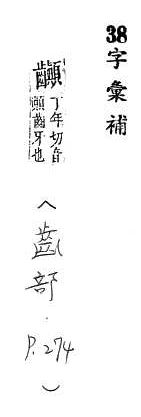 38字彙補
丁年切音
顚齒牙也
(齒部．P.274)